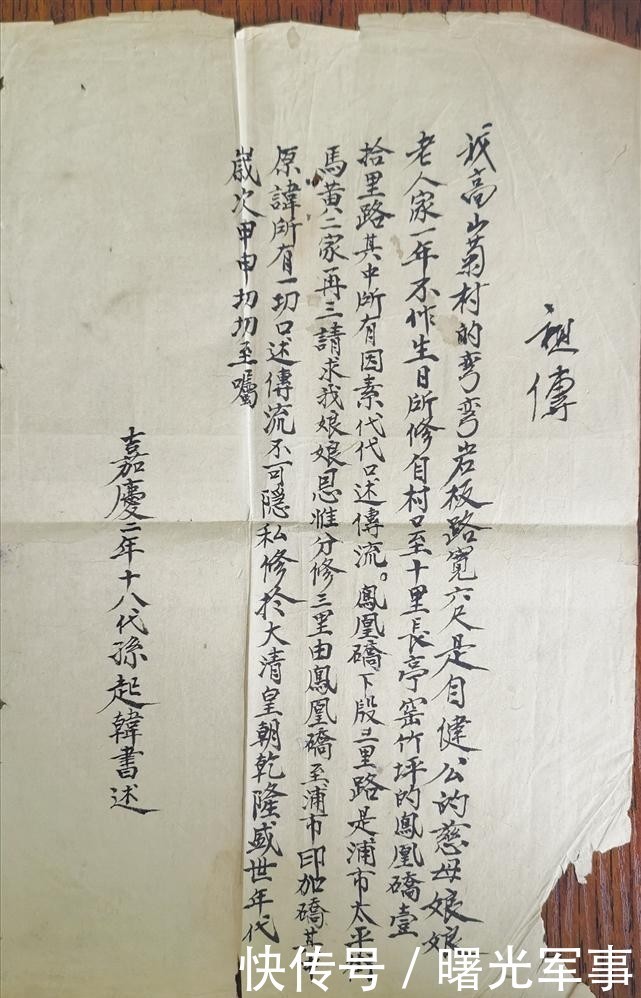 祖傳
我高山菊村的弯弯岩板路寬六尺是自健公的慈母娘娘
老人家一年不作生日所修自村口至十里長亭窑竹坪的鳳凰礄壹
拾里路其中所有因素代代口述傳流。鳳凰礄下段三里路是浦市太平
馬黄二家再三請求我娘娘恩惟分修三里由鳳凰礄至浦市印加礄其
原諱所有一切口述傳流不可隱私修於大清皇朝乾隆盛世年代
歲次甲申切切至囑
嘉慶二年十八代孫起韓書述
快传号 / 曙光军事